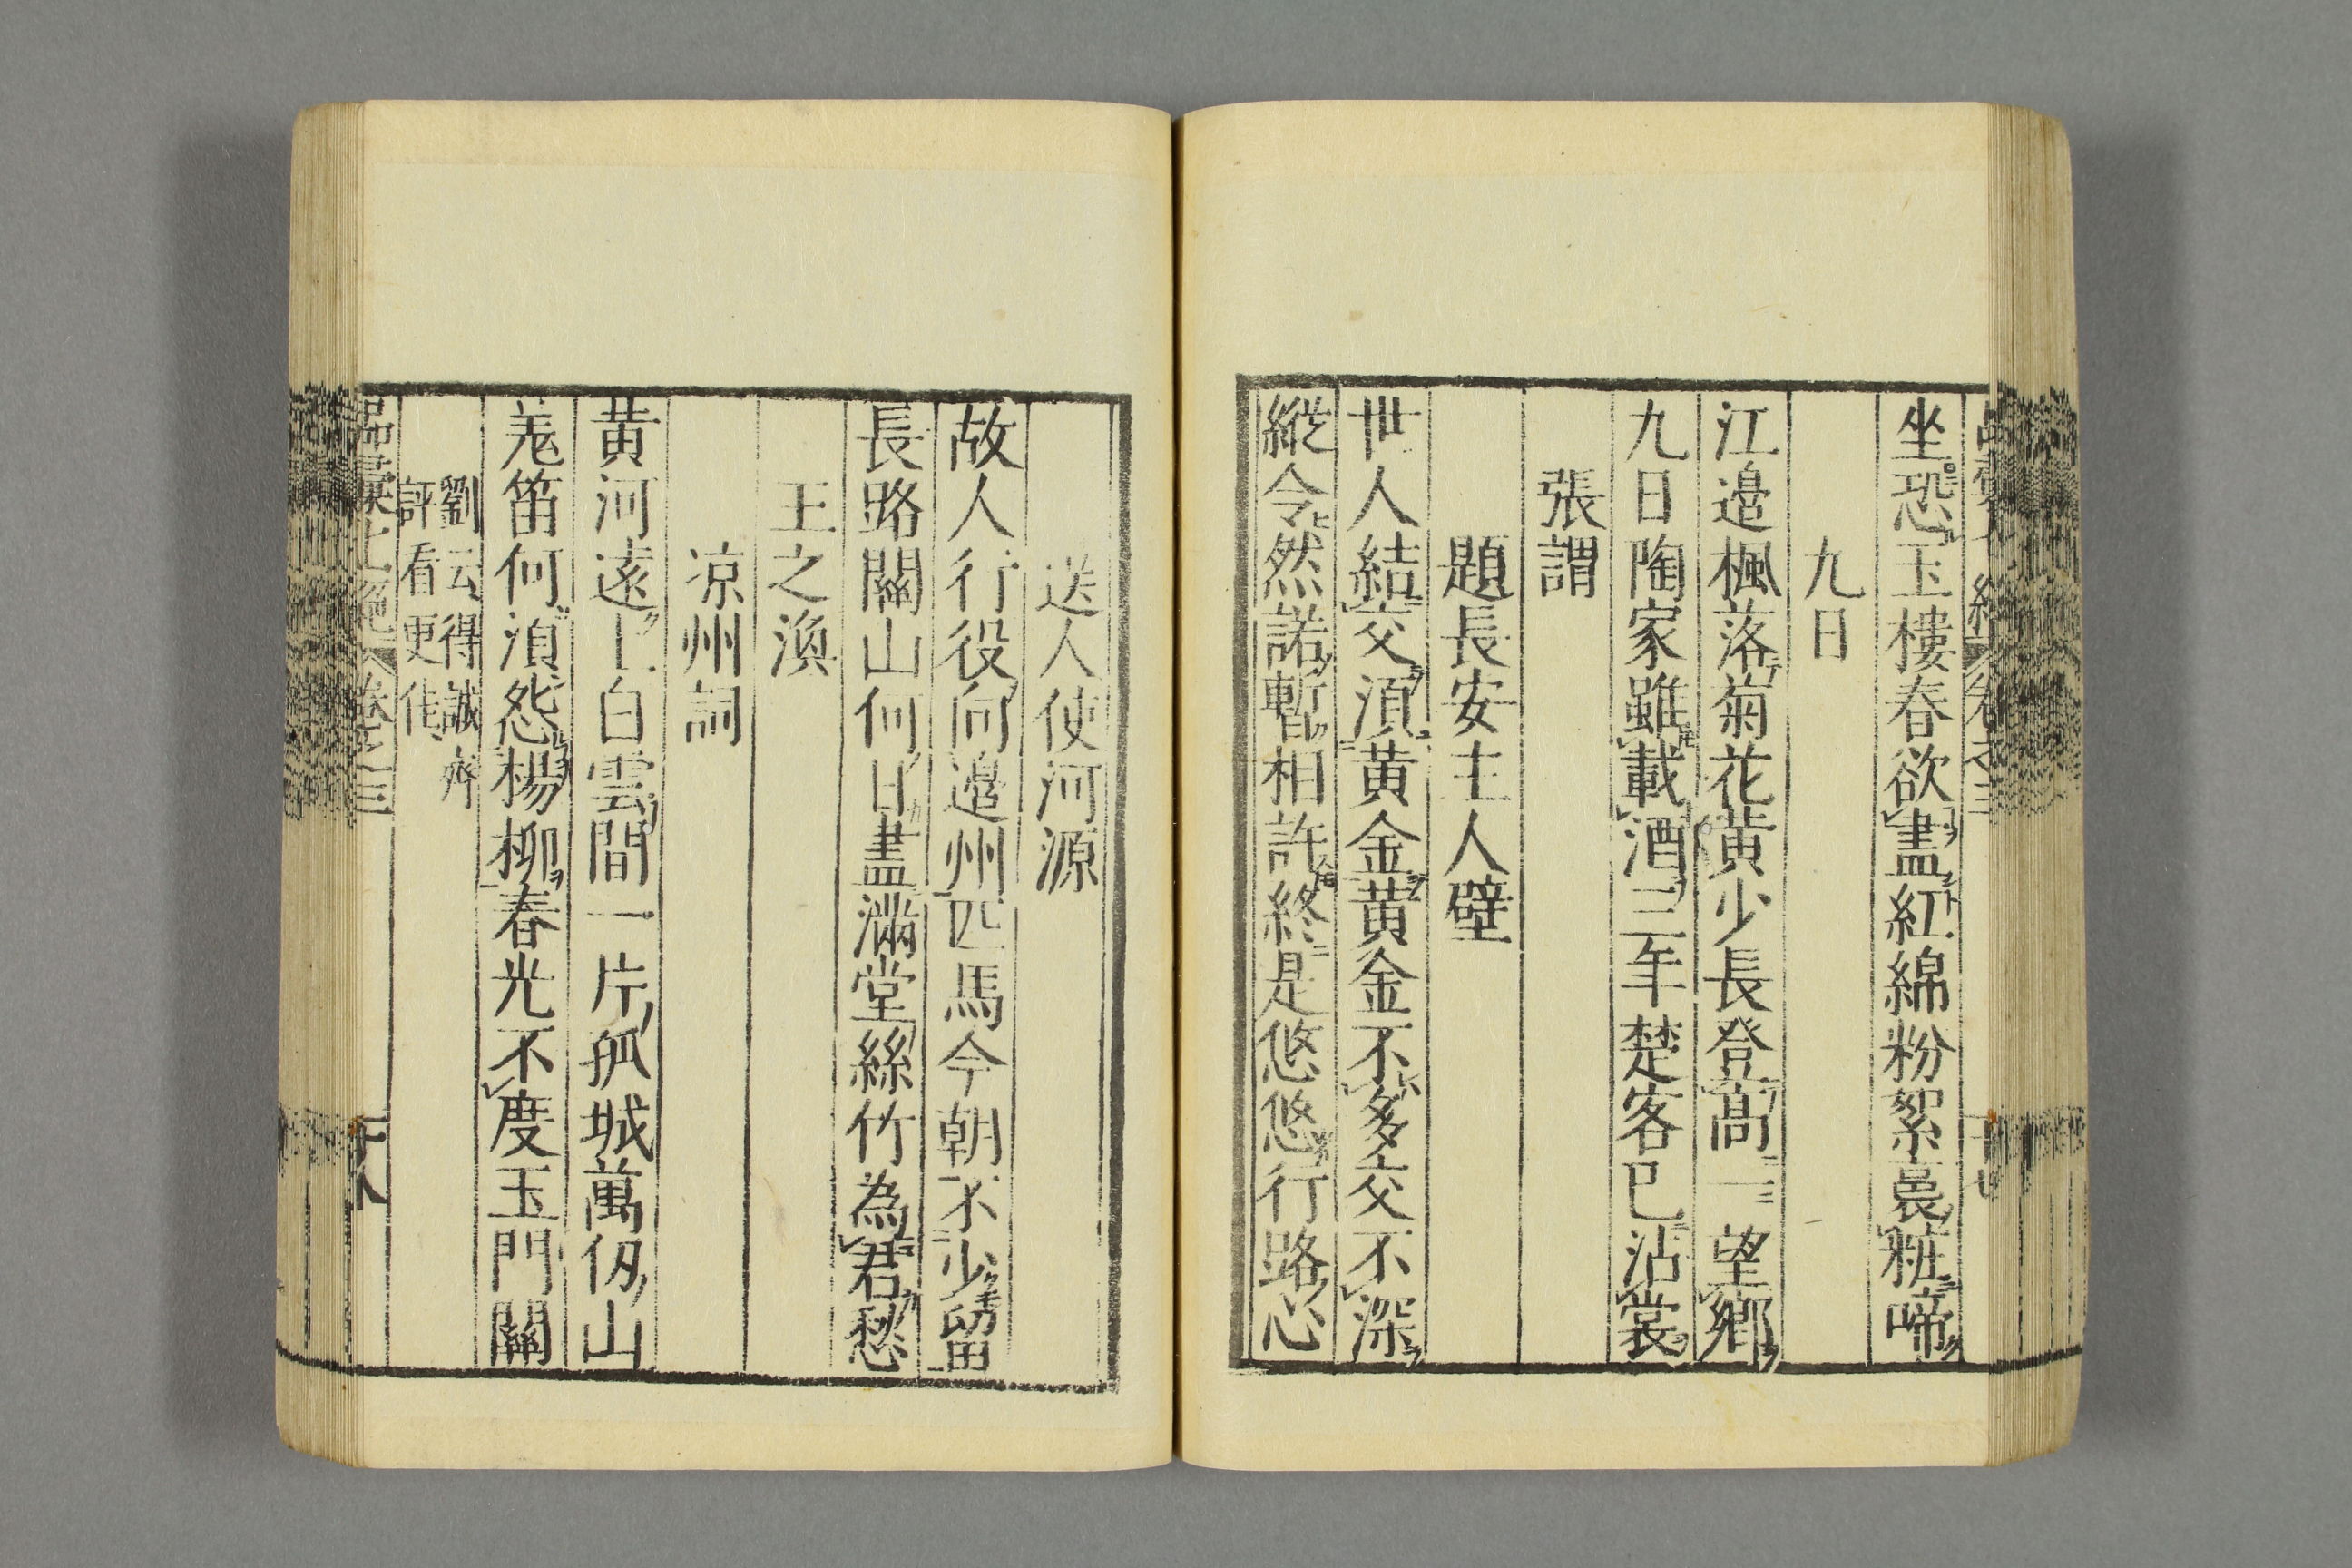 坐恐玉樓春欲盡紅綿粉絮裛粧啼
九日
江邉楓落菊花黄少長登髙一望鄉
九日陶家雖載酒三年楚客已沾裳
張謂
題長安主人壁
世人結交湏黄金黄金不多交不深
縱令然諾暫相許終是悠悠行路心
送人使河源
故人行役向邉州匹馬今朝不少留
長路關山何日盡滿堂絲竹為君愁
王之渙
凉州詞
黄河遠上白雲間一片孤城萬仭山
羗笛何湏怨楊柳春光不度玉門關
劉云得誠齊
評看更佳
品彙七絶 卷之三
十八